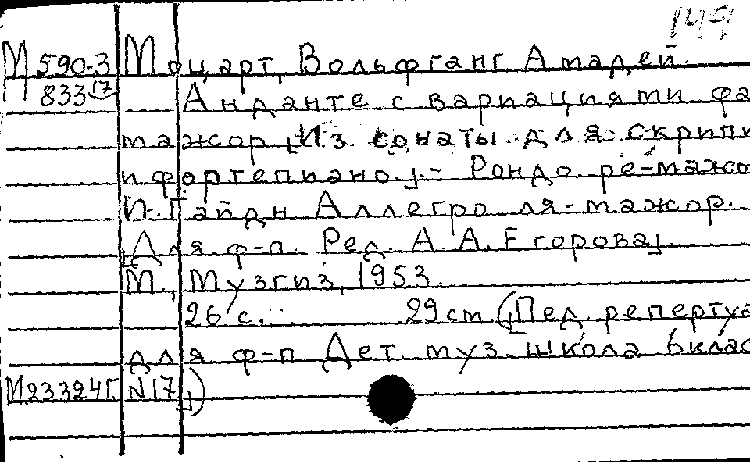 149
М 590-3 Моцарт, Вольфганг Амадей.
833 17 Анданте с вариациями фа
мажор [Из сонаты для скрипк
и фортепиано.] - Рондо ре-мажо
И. Гайдн Аллегро ля-мажор.
[Для ф-п. Ред. А. А. Егорова]
М., Музгиз, 1953
26 с. 29 см ([Пед. репертуа
для ф-п Дет. муз. школа 6 клас
М23324Г N17])